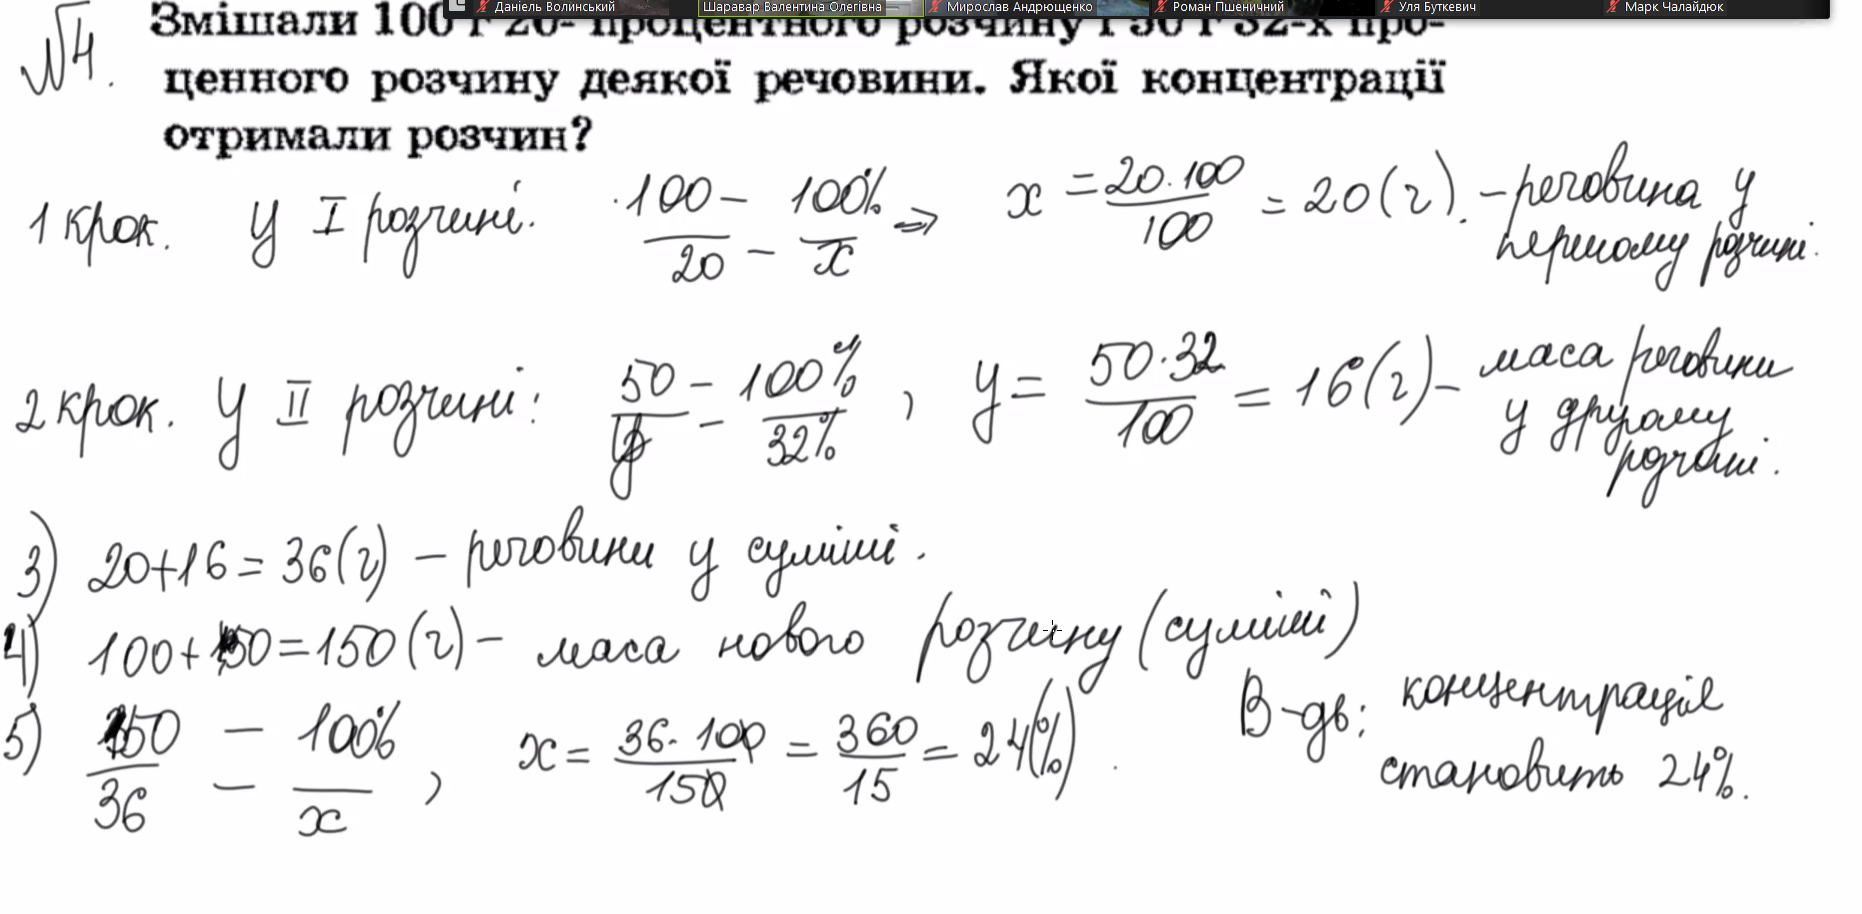 Даніель Волинський Шаравар Валентина Олегівна Мирослав Андрющенко Роман Пшеничний Уля Буткевич Марк Чалайдюк
№4. Змішали 100 г 20- процентного розчину і 50 г 32-х про-
ценного розчину деякої речовини. Якої концентрації
отримали розчин?
1 крок. У I розчині. 100 – 100% / 20 – x ⇒ x = 20·100/100 = 20 (г). – речовина у
першому розчині.
2 крок. У II розчині: 50 – 100% / y – 32% , y = 50·32/100 = 16 (г) – маса речовини
у другому
розчині.
3) 20+16 = 36 (г) – речовини у суміші.
4) 100+50 = 150 (г) – маса нового розчину (суміші)
5) 150 – 100% / 36 – x , x = 36·100/150 = 360/15 = 24 (%).
В-дь: концентрація
становить 24%.